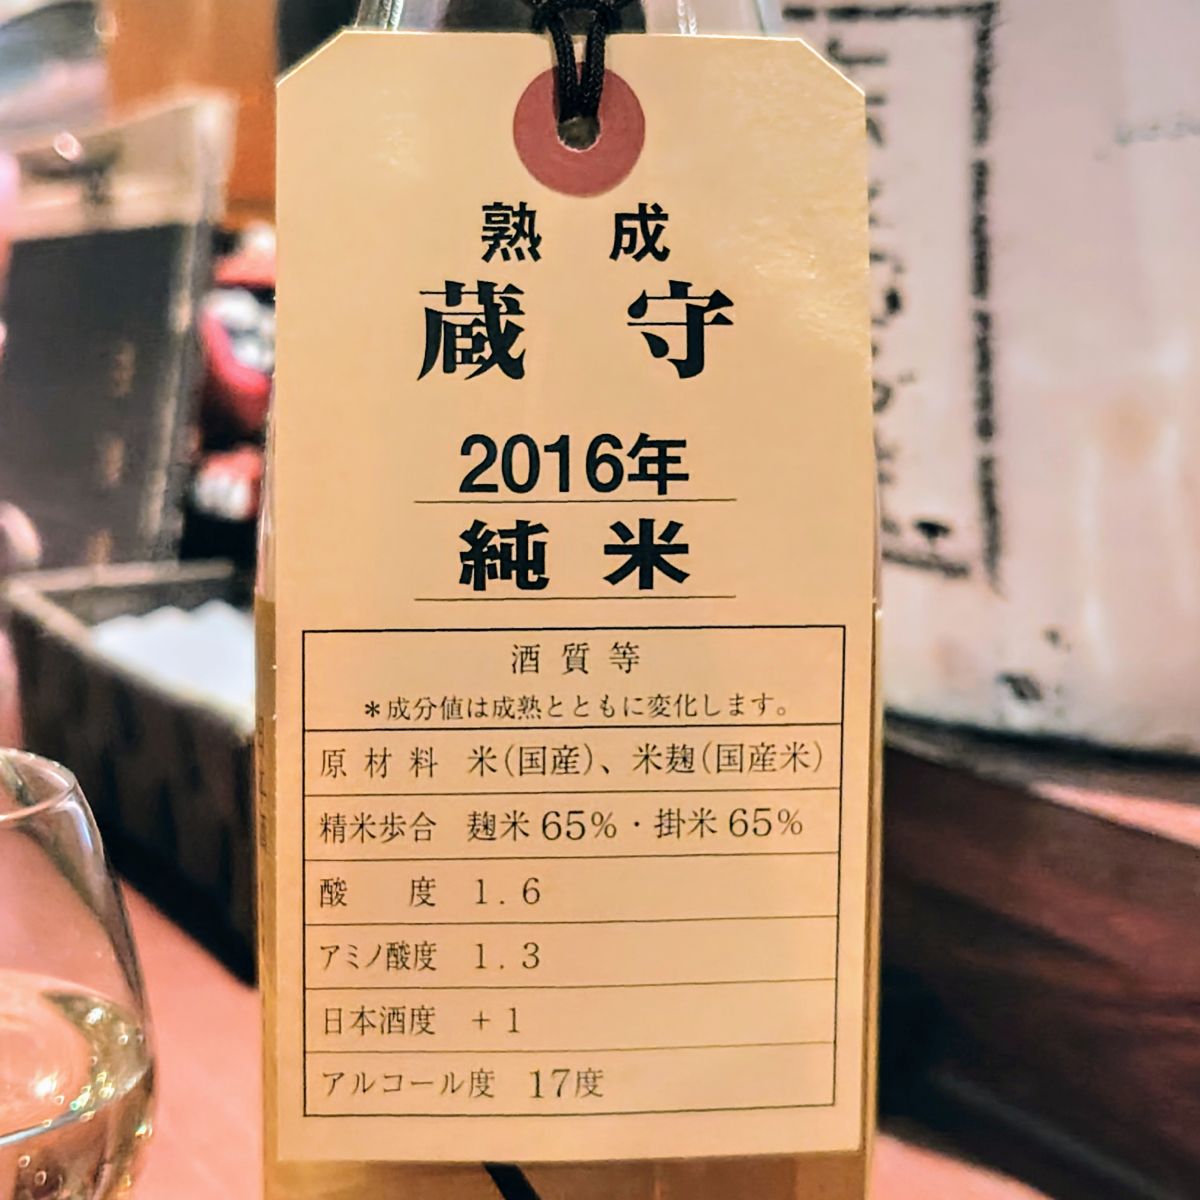 熟成
蔵守
2016年
純米
酒質等
*成分値は成熟とともに変化します。
原材料 米(国産)、米麹(国産米)
精米歩合 麹米65%・掛米65%
酸度 1.6
アミノ酸度 1.3
日本酒度 +1
アルコール度 17度